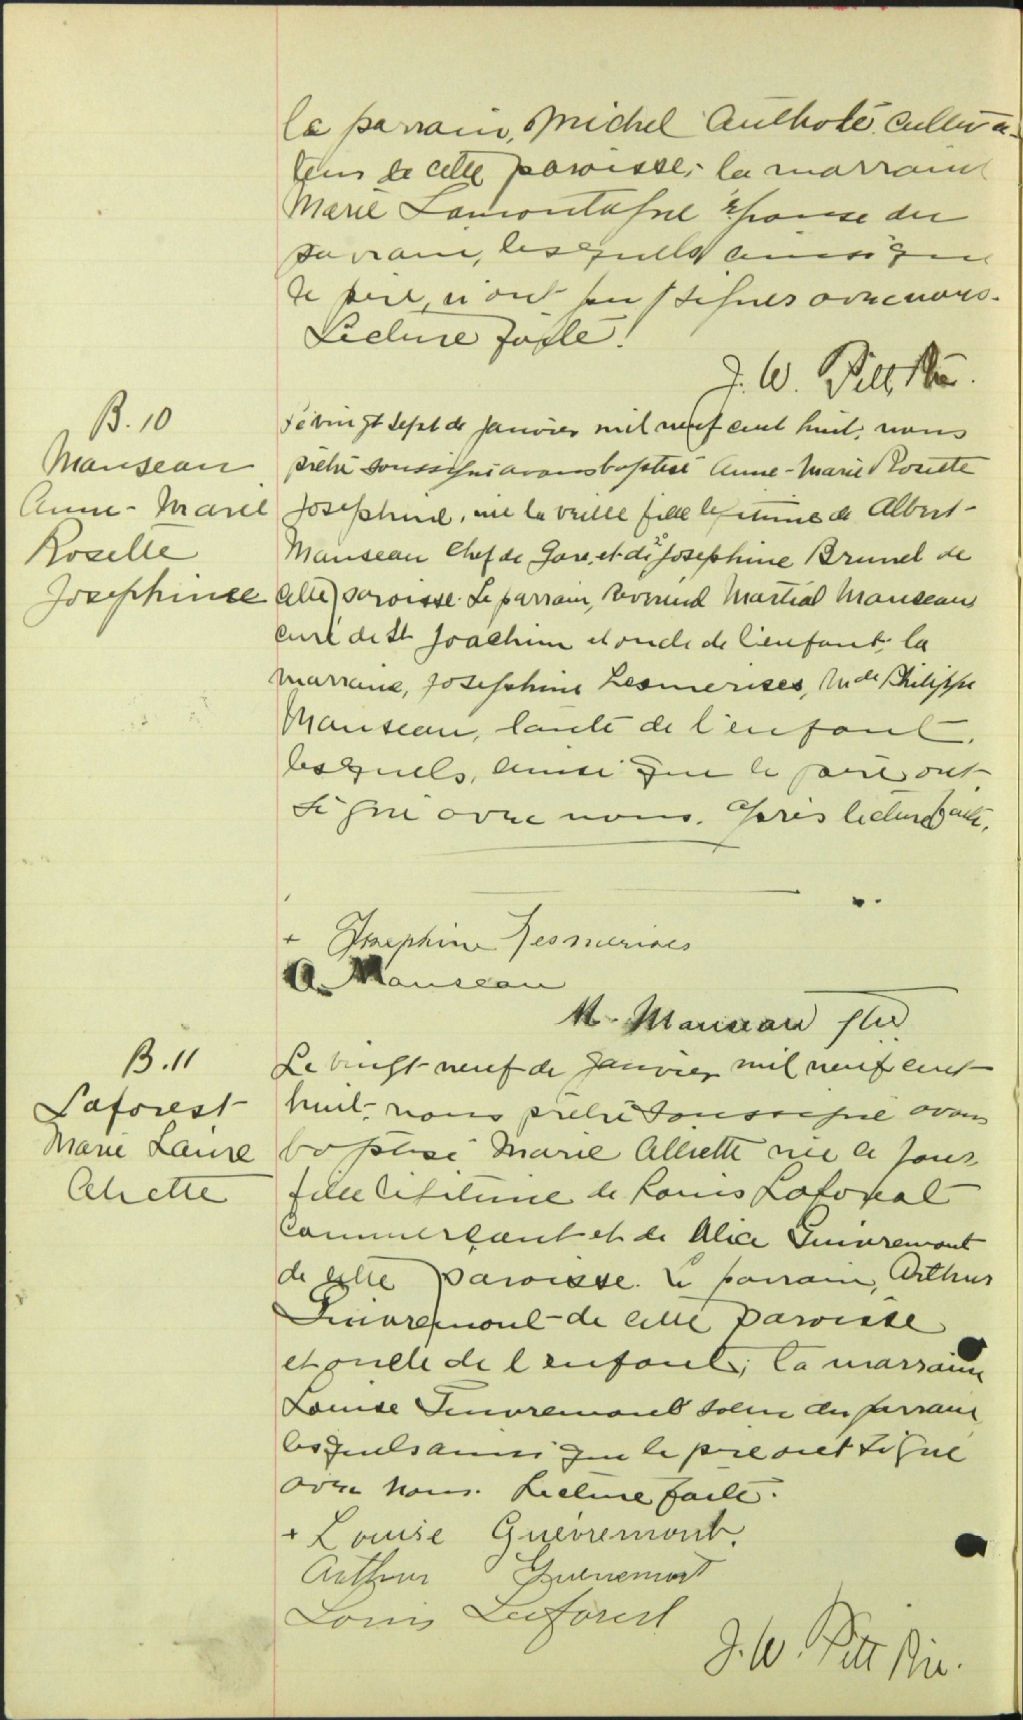 le parrain, Michel Authote, cultiva-
teur de cette paroisse; la marraine
Marie Lamontagne épouse du
parrain, lesquels ainsi que
le père, n'ont pu signer avec nous.
Lecture faite.
J. W. Pitt, Ptre.
B. 10
Manseau
Anne-Marie
Rosette
Josephine
Le vingt sept de janvier mil neuf cent huit, nous
prêtre soussigné avons baptisé Anne-Marie Rosette
Josephine, née la veille fille légitime de Albert
Manseau Chef de Gare, et de Josephine Brunel de
cette paroisse. Le parrain, Révérend Martial Manseau
curé de St Joachim et oncle de l'enfant; la
marraine, Josephine Lesmerises, Mde Philippe
Manseau, tante de l'enfant,
lesquels, ainsi que le père ont
signé avec nous. Après lecture faite.
+ Josephine Lesmerises
A. Manseau
M. Manseau ptre
B. 11
Laforest
Marie Laure
Aliette
Le vingt-neuf de janvier mil neuf cent
huit, nous prêtre soussigné avons
baptisé Marie Alliette née ce jour
fille légitime de Louis Laforest
commerçant et de Alice Guévremont
de cette paroisse. Le parrain, Arthur
Guévremont de cette paroisse
et oncle de l'enfant; la marraine
Louise Guévremont soeur du parrain
lesquels ainsi que le père ont signé
avec nous. Lecture faite.
+ Louise Guévremont.
Arthur Guevremont
Louis Laforest
J. W. Pitt Ptre.